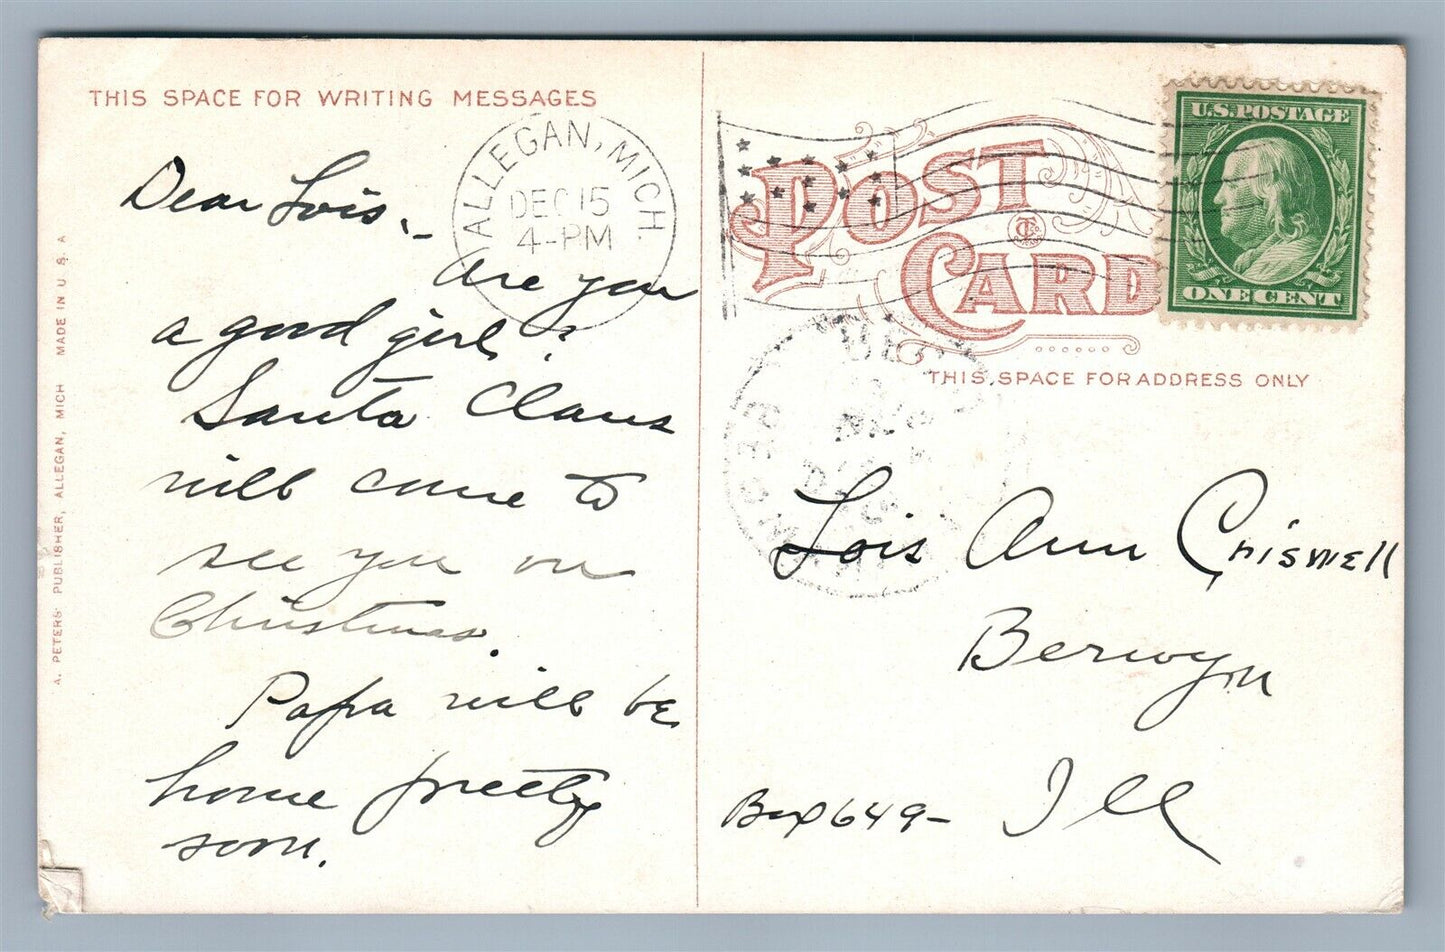 THIS SPACE FOR WRITING MESSAGES
ALLEGAN, MICH.
DEC 15
4-PM
Dear Lois:-
Are you
a good girl?
Santa Claus
will come to
see you on
Christmas.
Papa will be
home pretty
soon.
A. PETERS PUBLISHER, ALLEGAN, MICH MADE IN U S A
POST
CARD
U.S. POSTAGE
ONE CENT
THIS SPACE FOR ADDRESS ONLY
Lois Ann Chiswell
Berwyn
Box 649- Ill